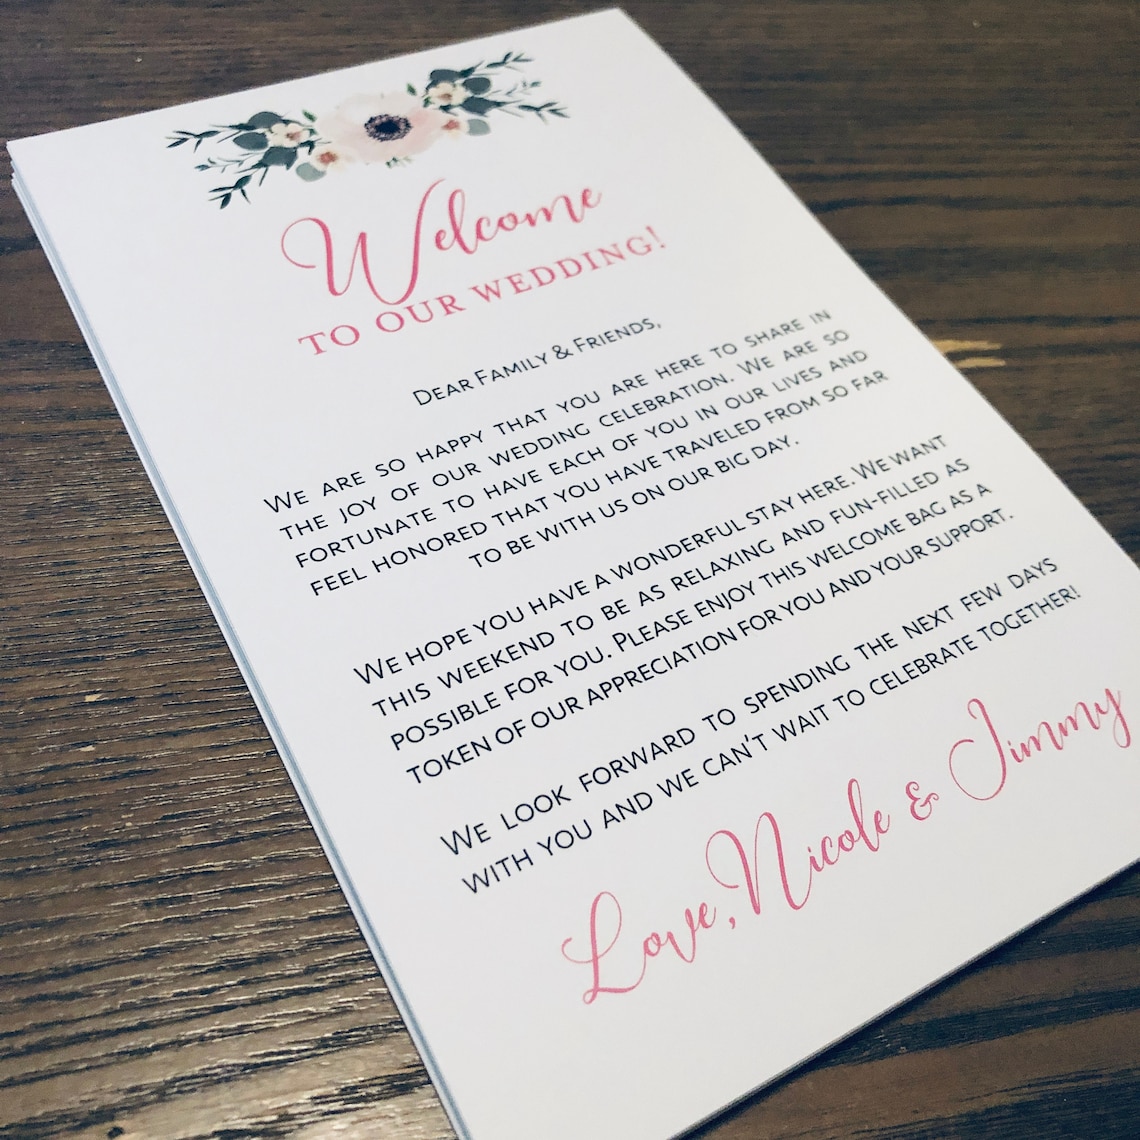 Welcome
TO OUR WEDDING!
DEAR FAMILY & FRIENDS,
WE ARE SO HAPPY THAT YOU ARE HERE TO SHARE IN
THE JOY OF OUR WEDDING CELEBRATION. WE ARE SO
FORTUNATE TO HAVE EACH OF YOU IN OUR LIVES AND
FEEL HONORED THAT YOU HAVE TRAVELED FROM SO FAR
TO BE WITH US ON OUR BIG DAY.
WE HOPE YOU HAVE A WONDERFUL STAY HERE. WE WANT
THIS WEEKEND TO BE AS RELAXING AND FUN-FILLED AS
POSSIBLE FOR YOU. PLEASE ENJOY THIS WELCOME BAG AS A
TOKEN OF OUR APPRECIATION FOR YOU AND YOUR SUPPORT.
WE LOOK FORWARD TO SPENDING THE NEXT FEW DAYS
WITH YOU AND WE CAN'T WAIT TO CELEBRATE TOGETHER!
Love, Nicole & Jimmy